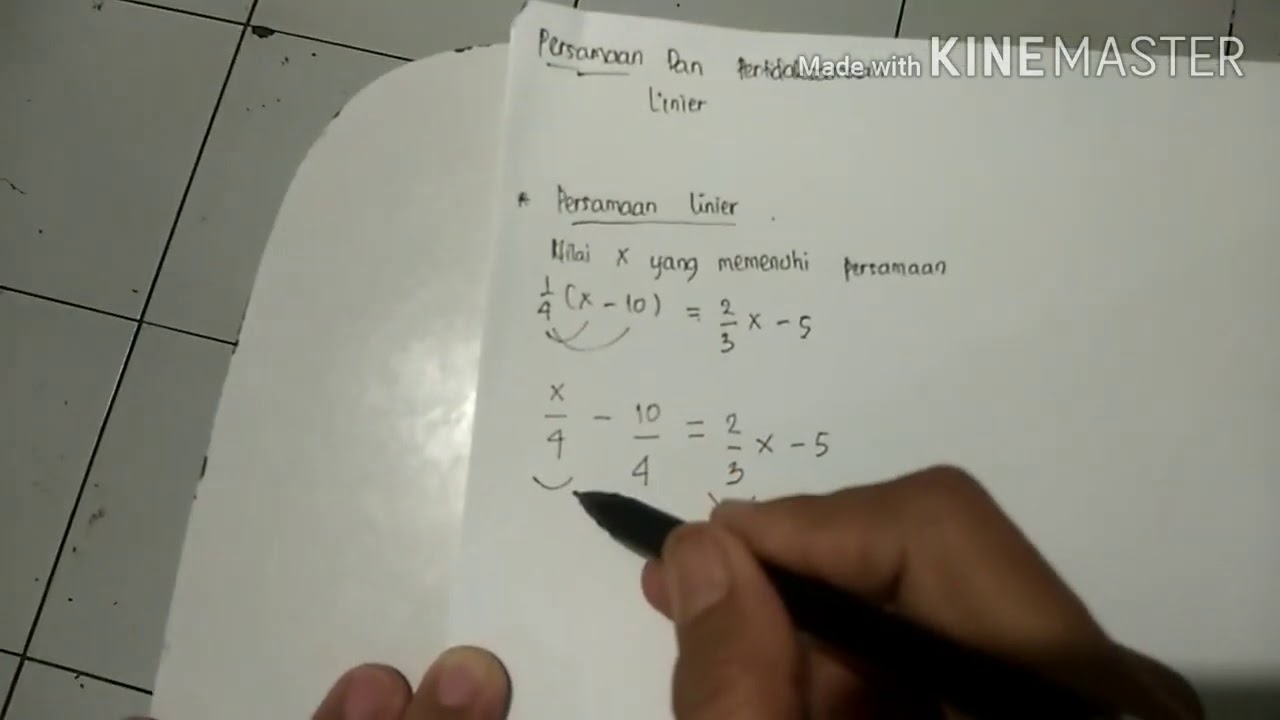 Persamaan Dan
Made with KINEMASTER
Linier
* Persamaan Linier .
Nilai x yang memenuhi persamaan
1/4 (x - 10) = 2/3 x - 5
x/4 - 10/4 = 2/3 x - 5